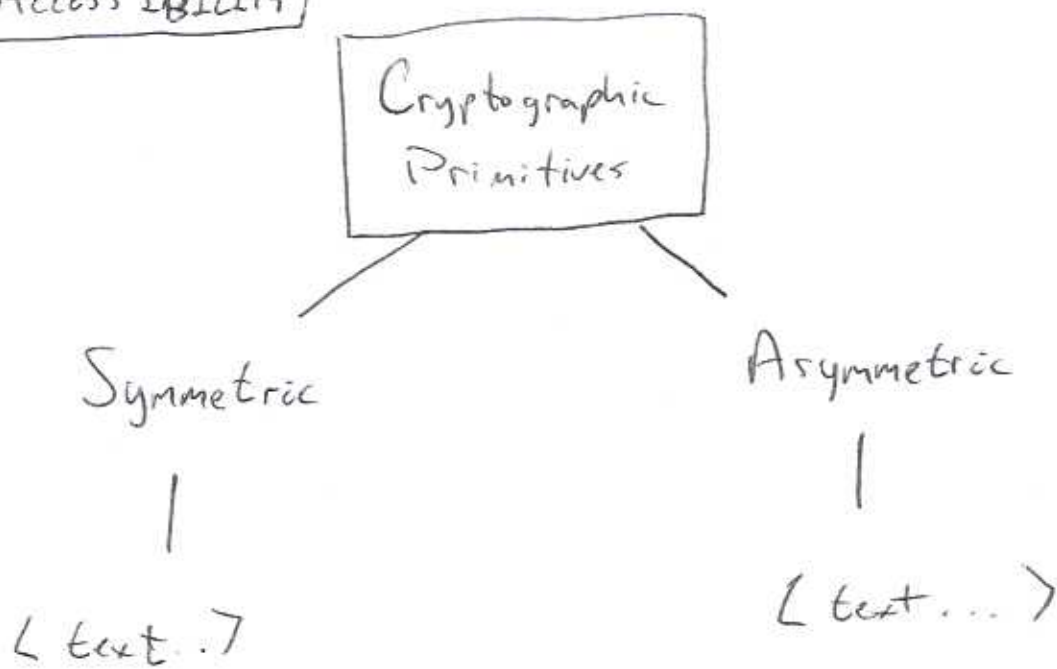 Accessibility
Cryptographic
Primitives
Symmetric
Asymmetric
< text.. >
< text... >